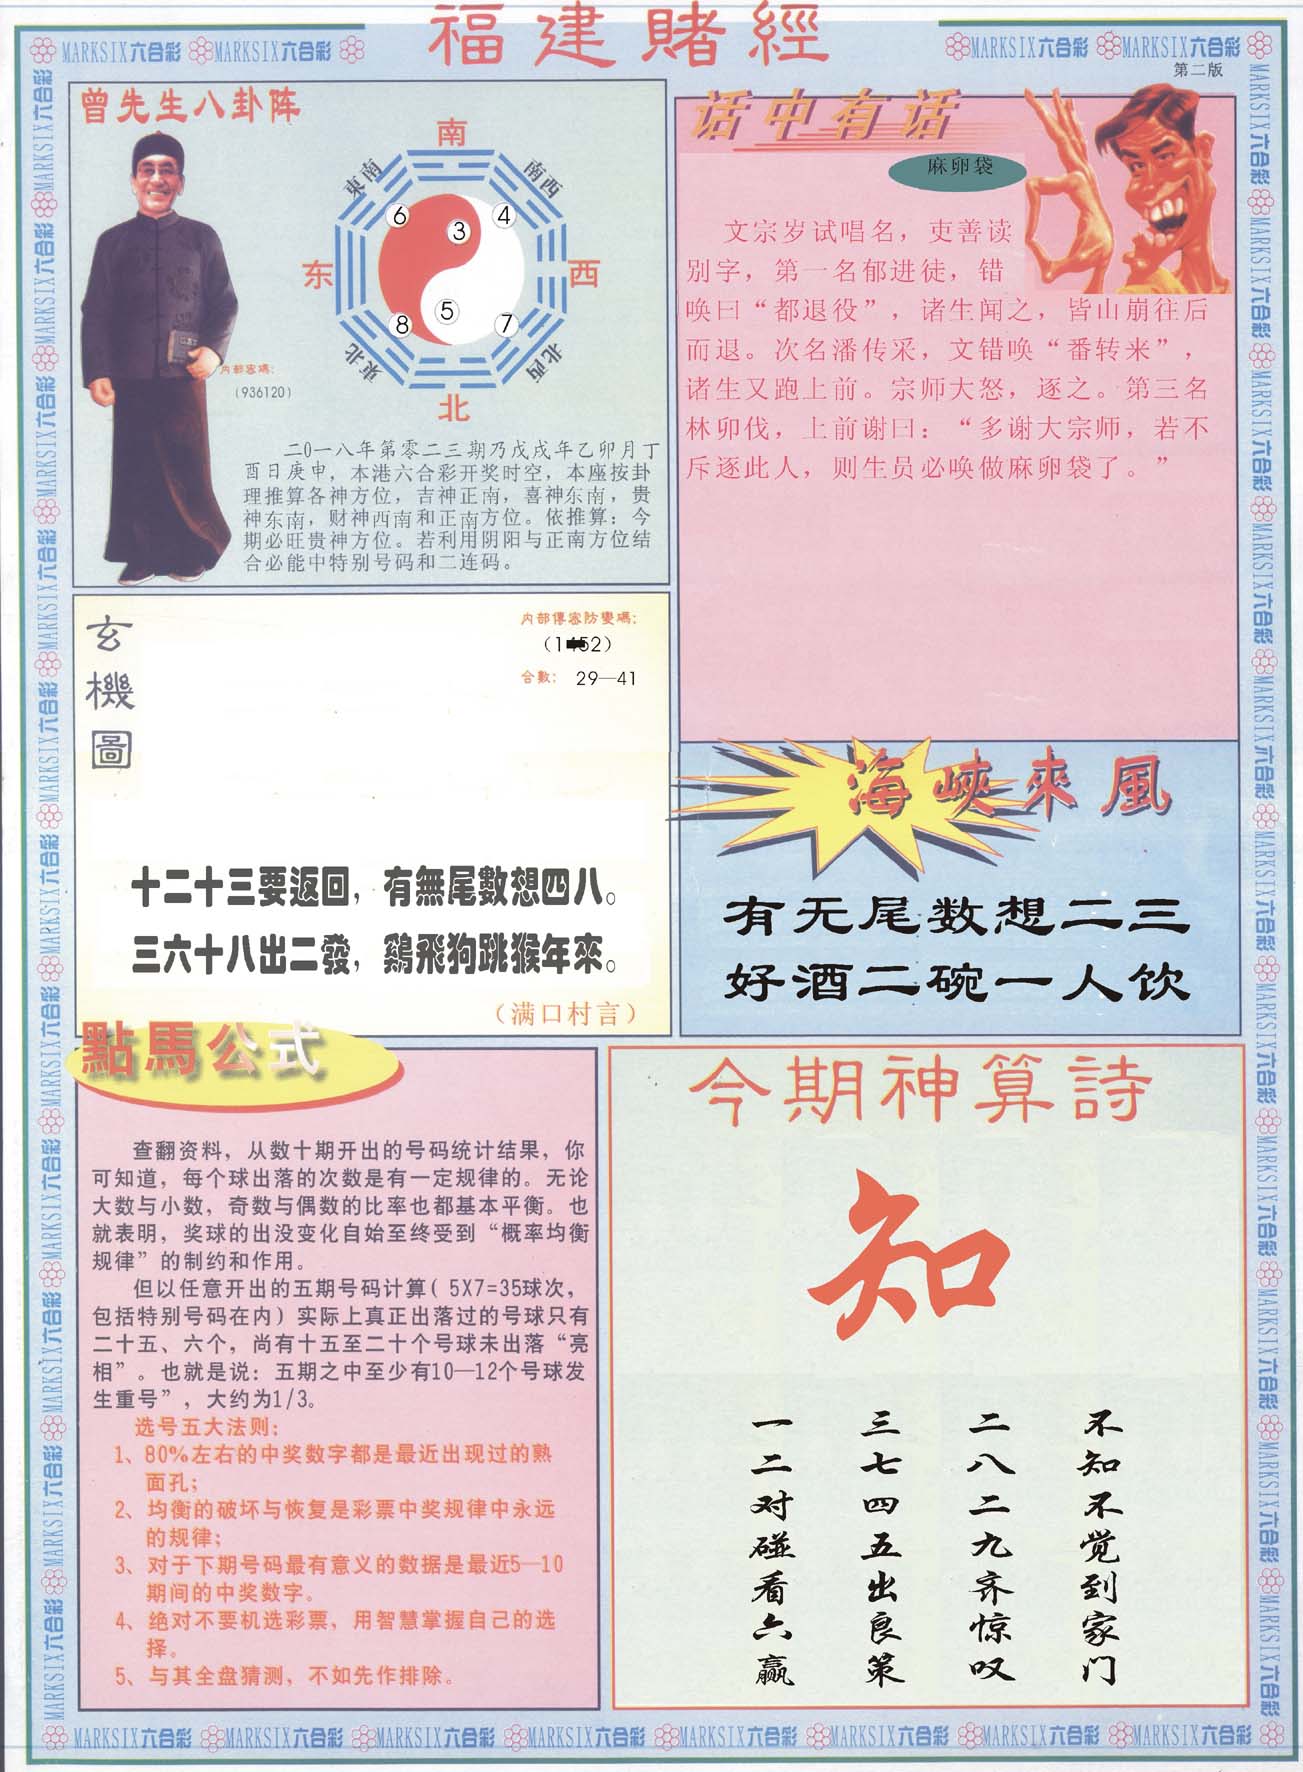 福建賭經
MARKSIX六合彩 MARKSIX六合彩
MARKSIX六合彩 MARKSIX六合彩
第二版
曾先生八卦阵
南
東南
南西
6
3
4
东
西
5
8
7
東北
北西
北
内部密碼：
（936120）
二0一八年第零二三期乃戊戌年乙卯月丁
酉日庚申，本港六合彩开奖时空，本座按卦
理推算各神方位，吉神正南，喜神东南，贵
神东南，财神西南和正南方位。依推算：今
期必旺贵神方位。若利用阴阳与正南方位结
合必能中特别号码和二连码。
话中有话
麻卵袋
文宗岁试唱名，吏善读
别字，第一名郁进徒，错
唤曰“都退役”，诸生闻之，皆山崩往后
而退。次名潘传采，文错唤“番转来”，
诸生又跑上前。宗师大怒，逐之。第三名
林卯伐，上前谢曰：“多谢大宗师，若不
斥逐此人，则生员必唤做麻卵袋了。”
玄機圖
内部傳密防變碼：
合數： 29—41
十二十三要返回，有無尾數想四八。
三六十八出二發，鷄飛狗跳猴年來。
（满口村言）
海峽來風
有无尾数想二三
好酒二碗一人饮
點馬公式
查翻资料，从数十期开出的号码统计结果，你
可知道，每个球出落的次数是有一定规律的。无论
大数与小数，奇数与偶数的比率也都基本平衡。也
就表明，奖球的出没变化自始至终受到“概率均衡
规律”的制约和作用。
但以任意开出的五期号码计算（5X7=35球次，
包括特别号码在内）实际上真正出落过的号球只有
二十五、六个，尚有十五至二十个号球未出落“亮
相”。也就是说：五期之中至少有10—12个号球发
生重号”，大约为1/3。
选号五大法则：
1、80%左右的中奖数字都是最近出现过的熟
面孔；
2、均衡的破坏与恢复是彩票中奖规律中永远
的规律；
3、对于下期号码最有意义的数据是最近5—10
期间的中奖数字。
4、绝对不要机选彩票，用智慧掌握自己的选
择。
5、与其全盘猜测，不如先作排除。
今期神算詩
知
不知不觉到家门
二八二九齐惊叹
三七四五出良策
一二对碰看六赢
MARKSIX六合彩 MARKSIX六合彩 MARKSIX六合彩 MARKSIX六合彩 MARKSIX六合彩 MARKSIX六合彩 MARKSIX六合彩 MARKSIX六合彩